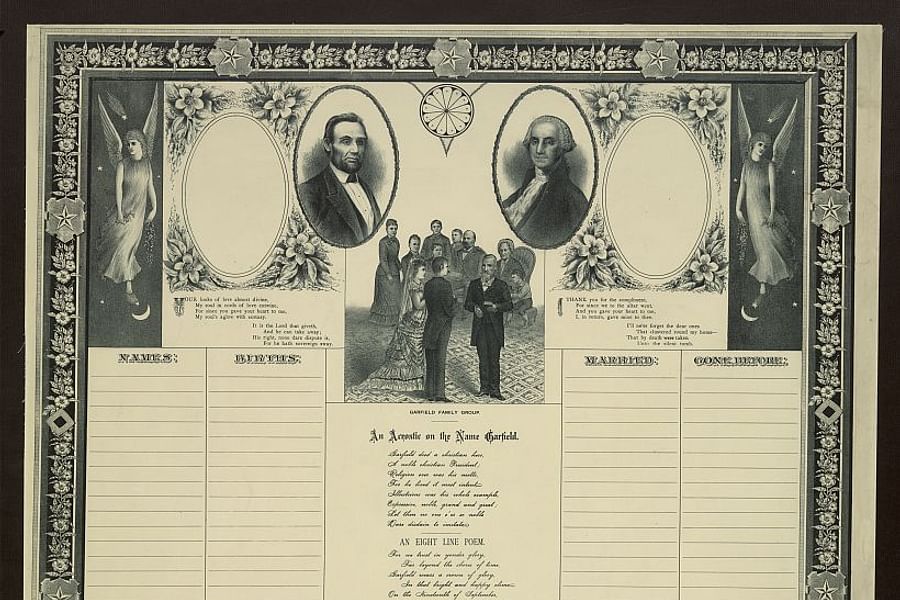 YOUR looks of love almost divine,
My soul in cords of love entwine,
For since you gave your heart to me,
My soul's aglow with ecstasy.
It is the Lord that giveth,
And he can take away;
His right, none dare dispute it,
For he hath sovereign sway.
I THANK you for the compliment,
For since we to the altar went,
And you gave your heart to me,
I, in return, gave mine to thee.
I'll ne'er forget the dear ones
That clustered round my home—
That by death were taken
Unto the silent tomb.
NAMES:
BIRTHS.
MARRIED:
GONE BEFORE:
GARFIELD FAMILY GROUP.
An Acrostic on the Name Garfield.
Garfield died a christian hero,
A noble christian President;
Religion was his motto,
For he lived it most intent.
Illustrious was his whole example,
Expressive, noble, grand and great;
Let then no one e'er so noble
Dare disdain to imitate.
AN EIGHT LINE POEM.
For we trust in yonder glory,
Far beyond the shores of time,
Garfield wears a crown of glory,
In that bright and happy clime.
On the Nineteenth of September,